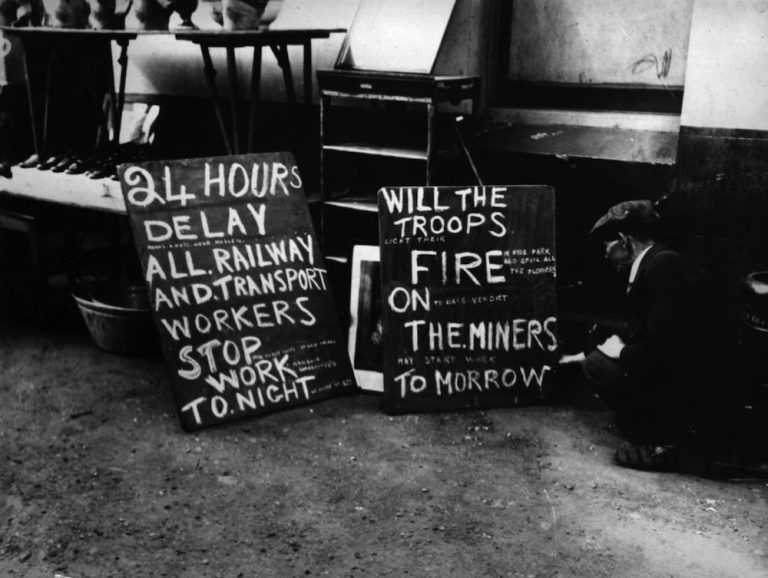 24 HOURS
DELAY
ALL.RAILWAY
AND.TRANSPORT
WORKERS
STOP
WORK
TO.NIGHT
WILL THE
TROOPS.
LIGHT THEIR
FIRE IN HYDE PARK
AND SPOIL ALL
THE FLOWERS
ON TO DAYS VERDICT
THE.MINERS
MAY START WORK
TO MORROW